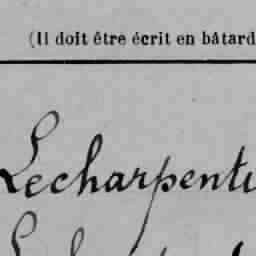 (Il doit être écrit en bâtard
Lecharpenti